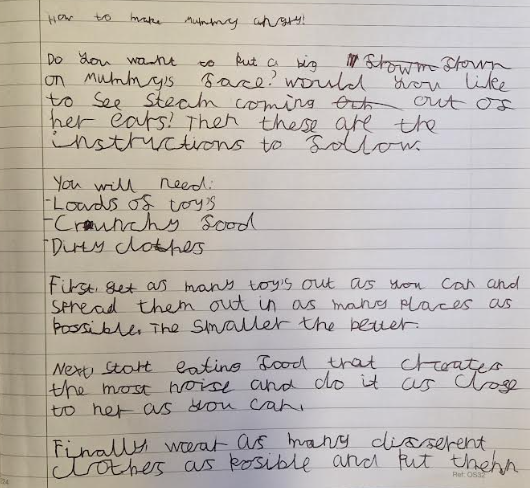 How to make Mummy angry!
Do you want to put a big frown
on Mummy's face? would you like
to see steam coming out of
her ears? Then these are the
instructions to follow.
You will need:
-Loads of toy's
-Crunchy food
-Dirty clothes
First, get as many toy's out as you can and
spread them out in as many places as
possible. The smaller the better.
Next, start eating food that creates
the most noise and do it as close
to her as you can.
Finally, wear as many different
clothes as posible and put them
24
Ref: OS32